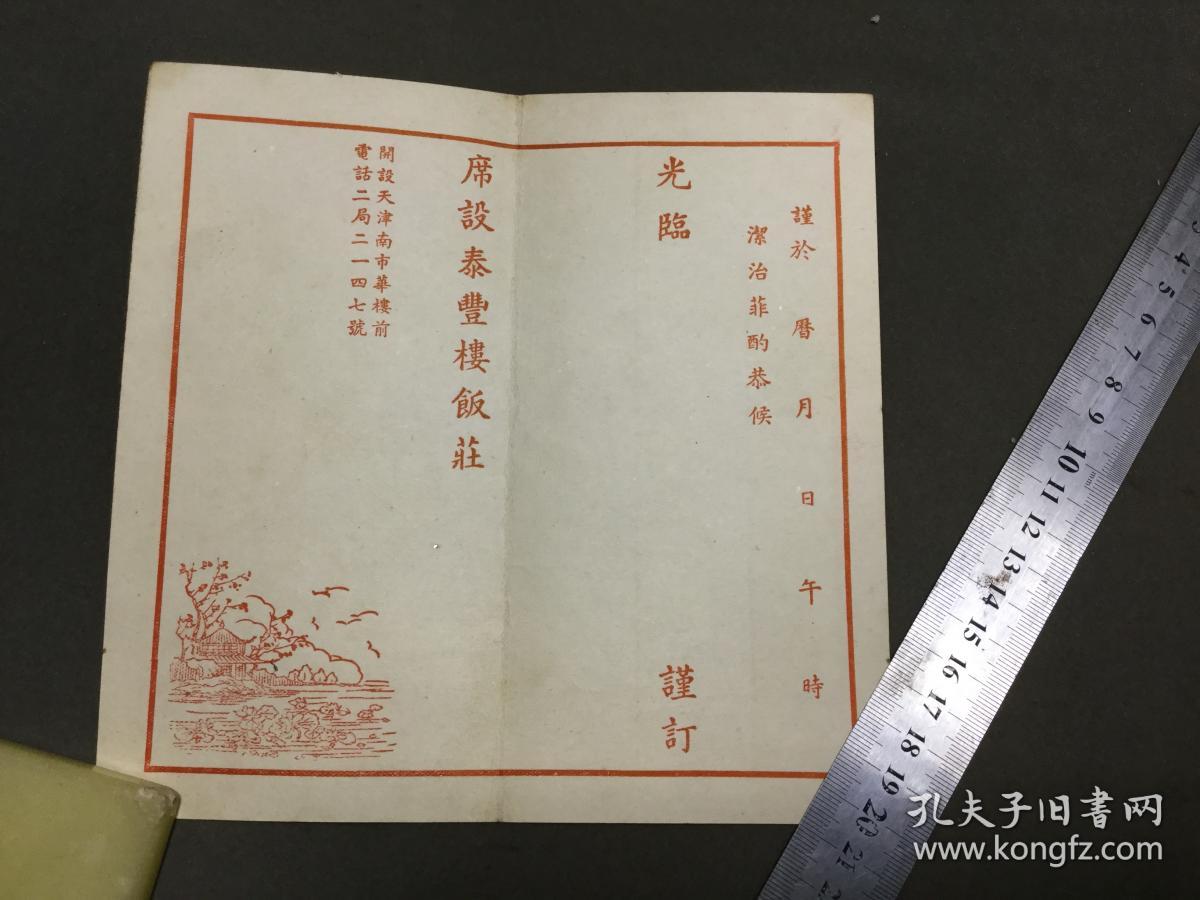 謹於 曆 月 日 午 時
潔治菲酌恭候
光臨 謹訂
席設泰豐樓飯莊
開設天津南市華樓前
電話二局二一四七號
3 4 5 6 7 8 9 10 11 12 13 14 15 16 17 18 19 20 21
mm
孔夫子旧书网
www.kongfz.com